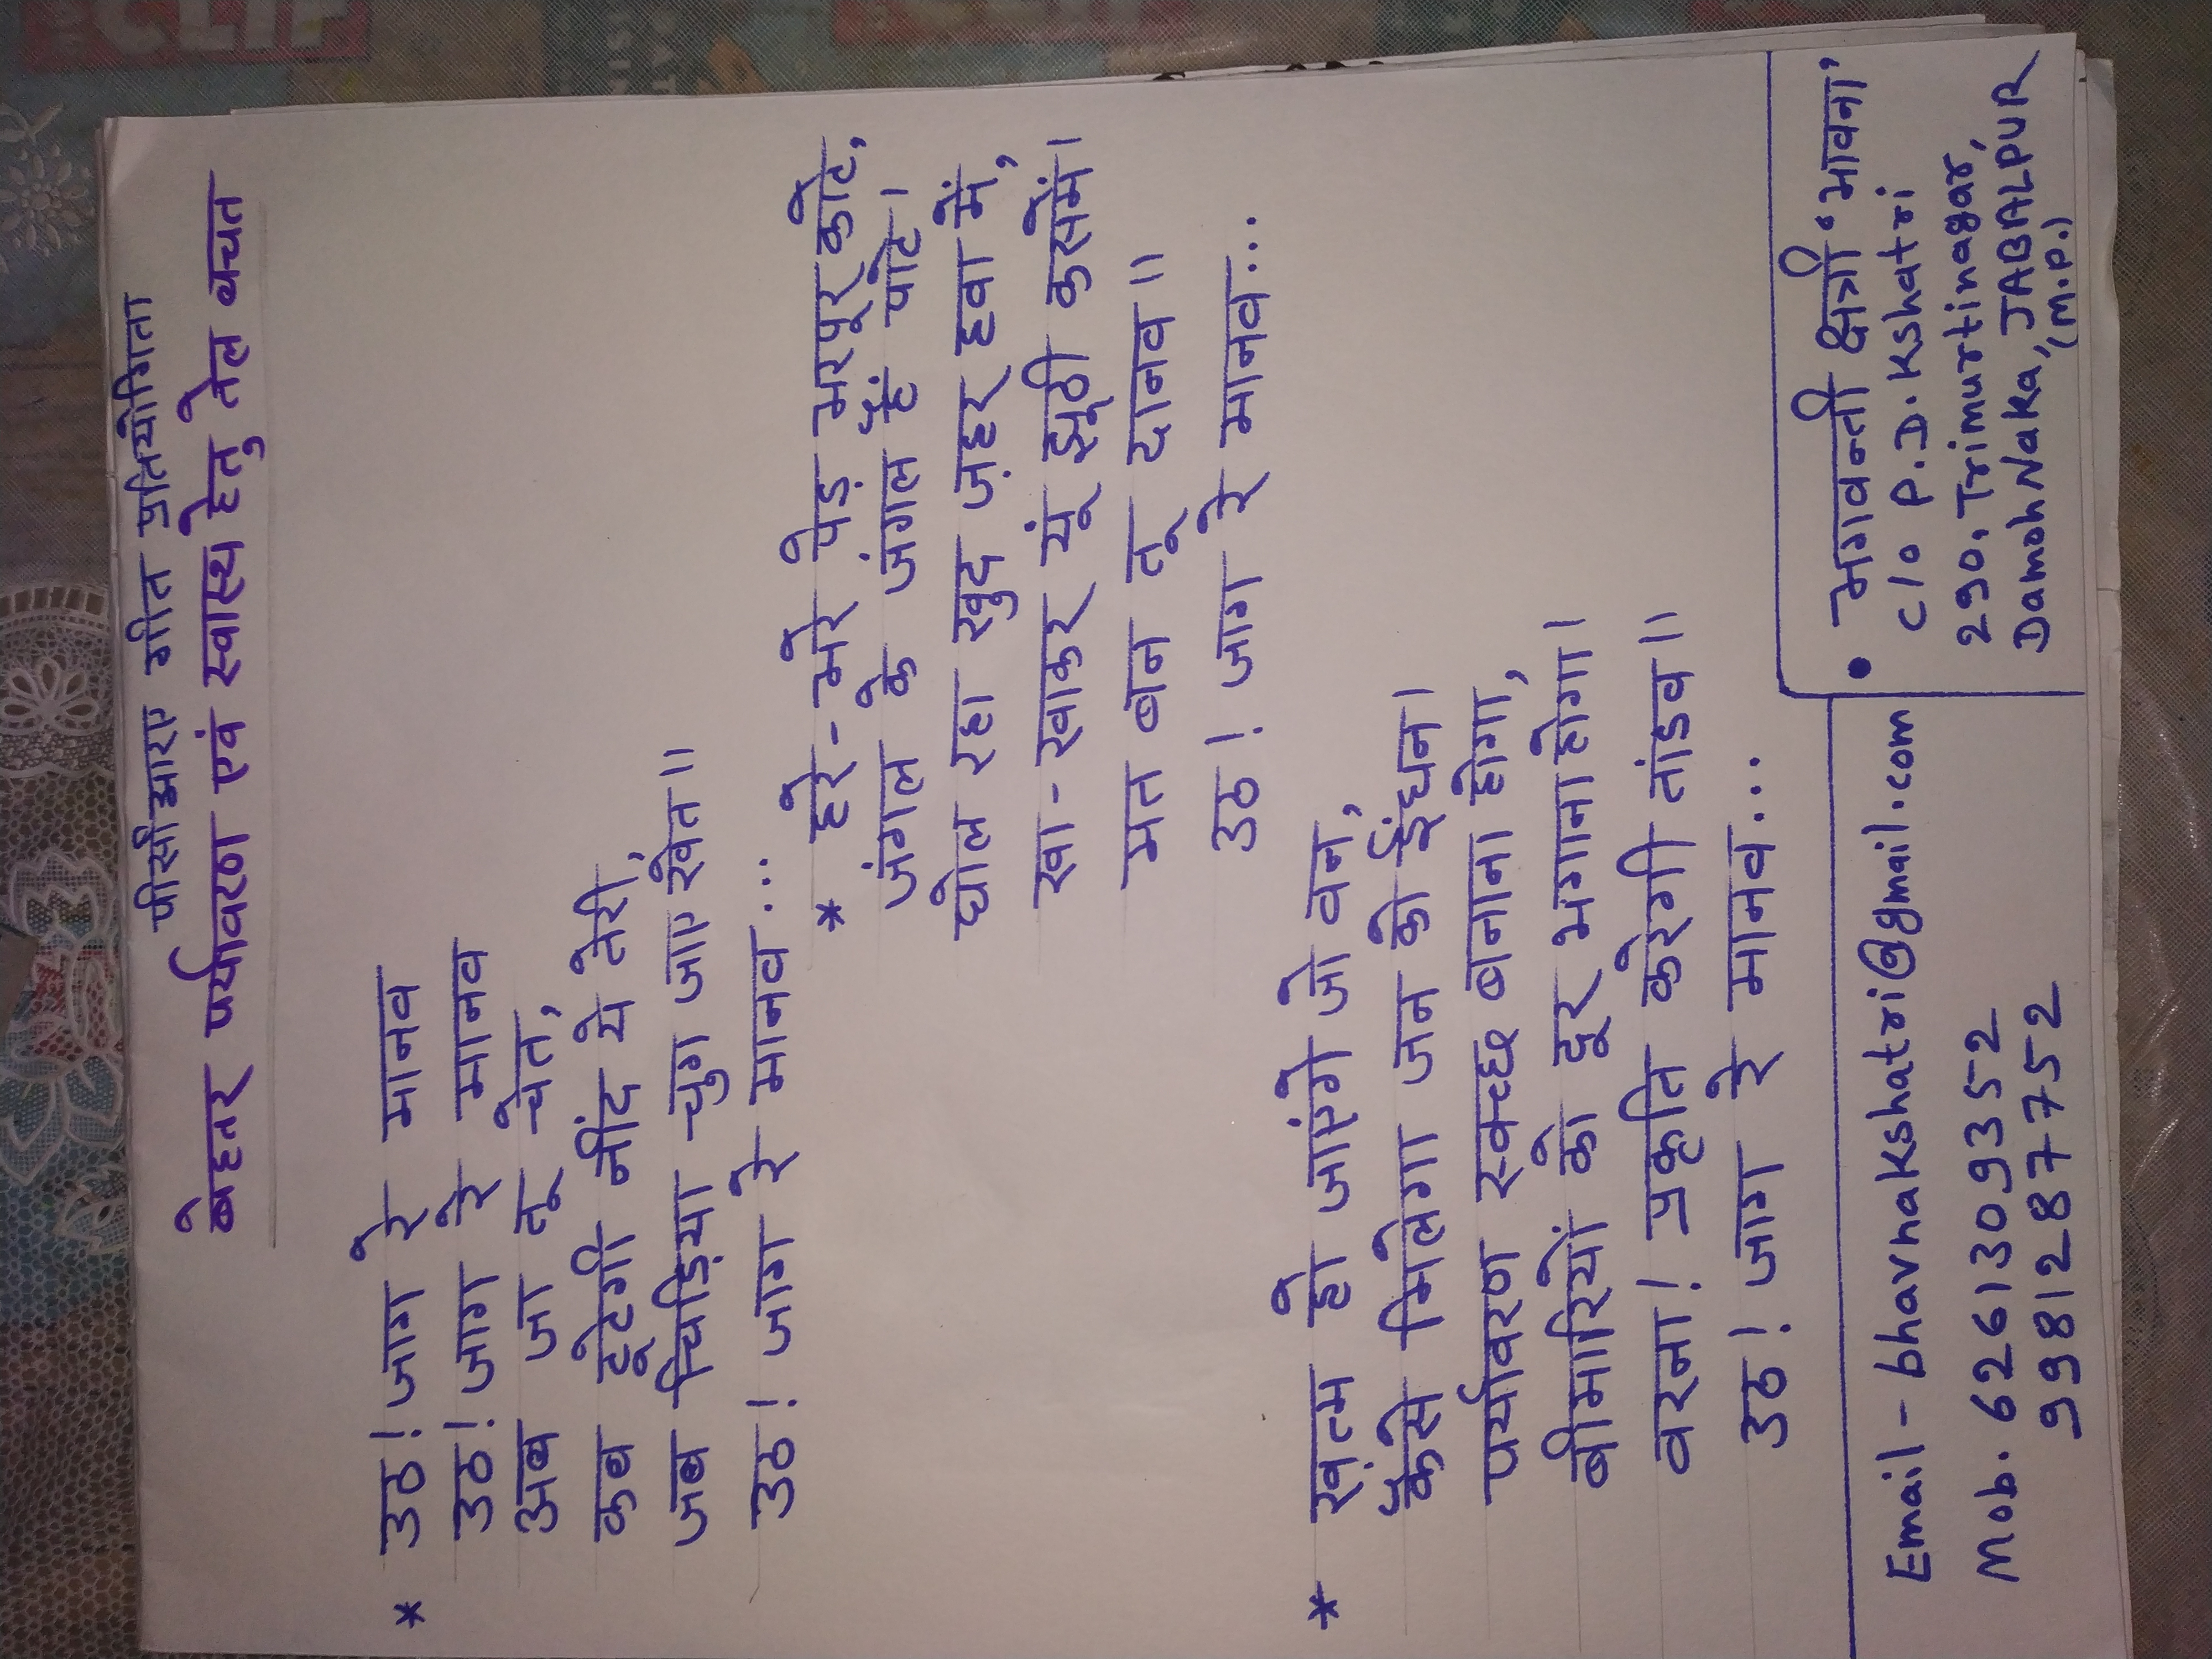 पीसीआरए गीत प्रतियोगिता
बेहतर पर्यावरण एवं स्वास्थ हेतु तेल बचत
* उठ! जाग रे मानव
उठ! जाग रे मानव
अब जा तू चेत,
कब टूटेगी नींद ये तेरी,
जब चिड़िया चुग जाए खेत॥
उठ! जाग रे मानव...
* हरे-भरे पेड़ भरपूर काटे,
जंगल के जंगल हैं पाटे।
घोल रहा खुद ज़हर हवा में,
खा-खाकर यूं झूठी कसमें।
मत बन तू दानव॥
उठ! जाग रे मानव...
* ख़त्म हो जाएंगे जो वन,
कैसे मिलेगा जन को ईंधन।
पर्यावरण स्वच्छ बनाना होगा,
बीमारियों को दूर भगाना होगा।
वरना! प्रकृति करेगी तांडव॥
उठ! जाग रे मानव...
Email - bhavnakshatri@gmail.com
Mob. 6261309352
9981287752
• भगवन्ती क्षत्री 'भावना'
c/o P.D. Kshatri
290, Trimurtinagar,
Damoh Naka, JABALPUR
(M.P.)